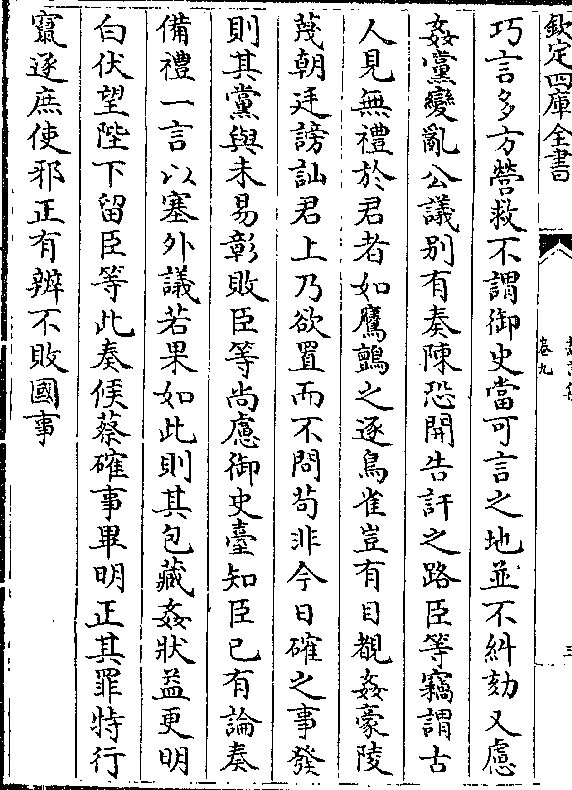 欽定四庫全書
卷九
三
巧言多方營救不謂御史當可言之地並不糾劾又慮
姦黨變亂公議別有奏陳恐開告訐之路臣等竊謂古
人見無禮於君者如鷹鸇之逐鳥雀豈有目覩姦豪陵
蔑朝廷謗訕君上乃欲置而不問苟非今日確之事發
則其黨與未易彰敗臣等尚慮御史臺知臣已有論奏
備禮一言以塞外議若果如此則其包藏姦狀益更明
白伏望陛下留臣等此奏候蔡確事畢明正其罪特行
竄逐庶使邪正有辨不敗國事